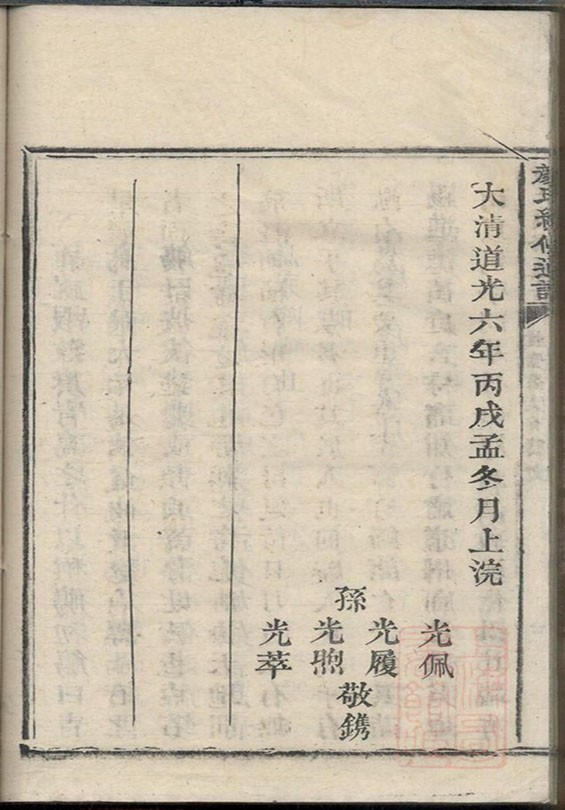 大清道光六年丙戌孟冬月上浣
光佩
光履
孫
光煦
敬鐫
光萃